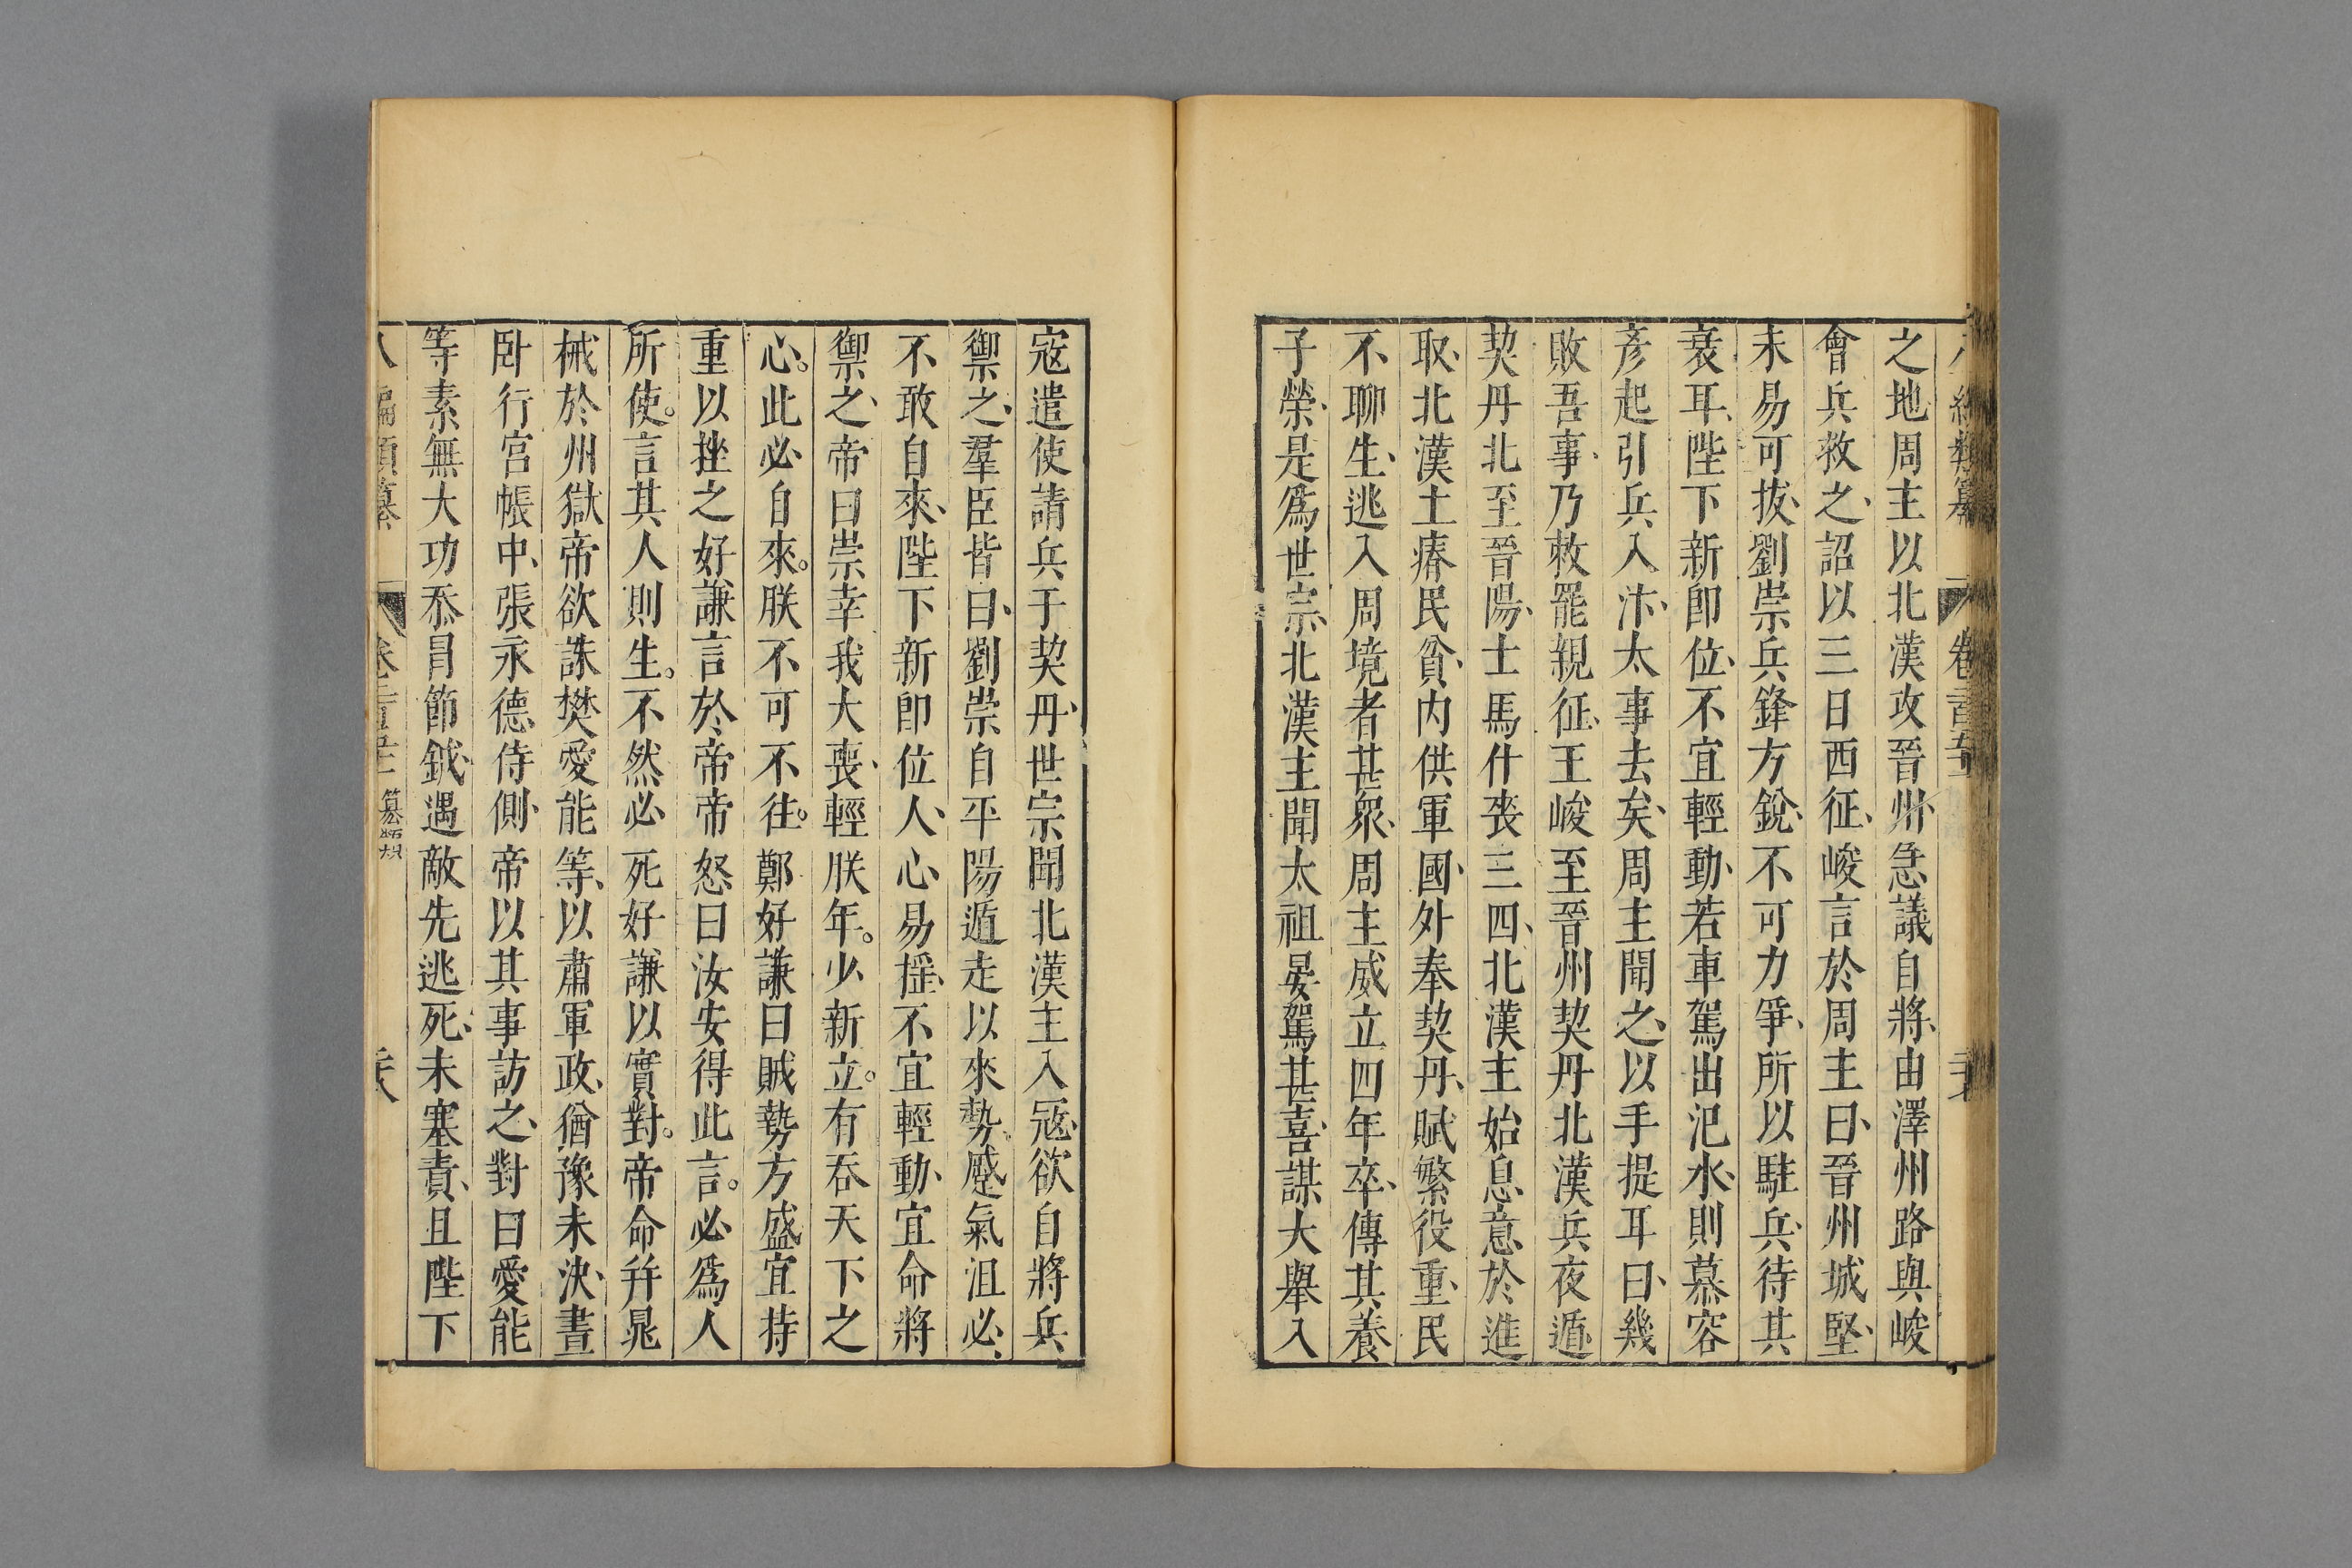 之地周主以北漢攻晉州急議自將由澤州路與峻
會兵救之詔以三日西征峻言於周主曰晉州城堅
未易可拔劉崇兵鋒方銳不可力爭所以駐兵待其
衰耳陛下新即位不宜輕動若車駕出汜水則慕容
彥起引兵入汴太事去矣周主聞之以手提耳曰幾
敗吾事乃敕罷親征王峻至晉州契丹北漢兵夜遁
契丹北至晉陽士馬什喪三四北漢主始息意於進
取北漢土瘠民貧內供軍國外奉契丹賦繁役重民
不聊生逃入周境者甚眾周主威立四年卒傳其養
子榮是爲世宗北漢主聞太祖晏駕甚喜謀大舉入
寇遣使請兵于契丹世宗聞北漢主入寇欲自將兵
禦之羣臣皆曰劉崇自平陽遁走以來勢蹙氣沮必
不敢自來陛下新即位人心易搖不宜輕動宜命將
禦之帝曰崇幸我大喪輕朕年。少新立。有吞天下之
心。此必自來。朕不可不往。鄭好謙曰賊勢方盛宜持
重以挫之好謙言於帝帝怒曰汝安得此言。必爲人
所使。言其人則生。不然必死好謙以實對。帝命并晁
械於州獄帝欲誅樊愛能等以肅軍政猶豫未決晝
臥行宮帳中張永德侍側帝以其事訪之對曰愛能
等素無大功忝冒節鉞遇敵先逃死未塞責且陛下